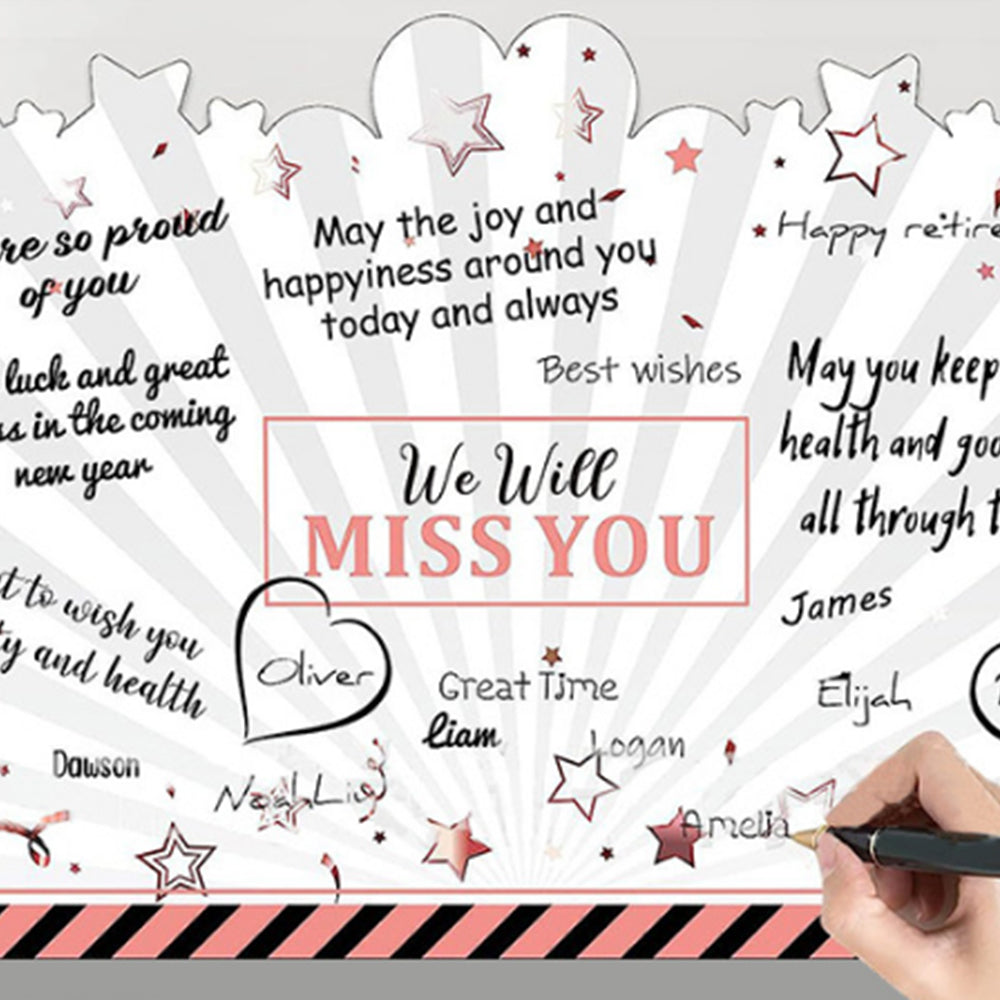 re so proud
of you
May the joy and
happyiness around you
today and always
Happy retire
luck and great
ss in the coming
new year
Best wishes
May you keep
health and goo
all through t
We Will
MISS YOU
t to wish you
ty and health
Oliver
Great Time
liam
Logan
James
Elijah
Dawson
Noah Liv
Amelia